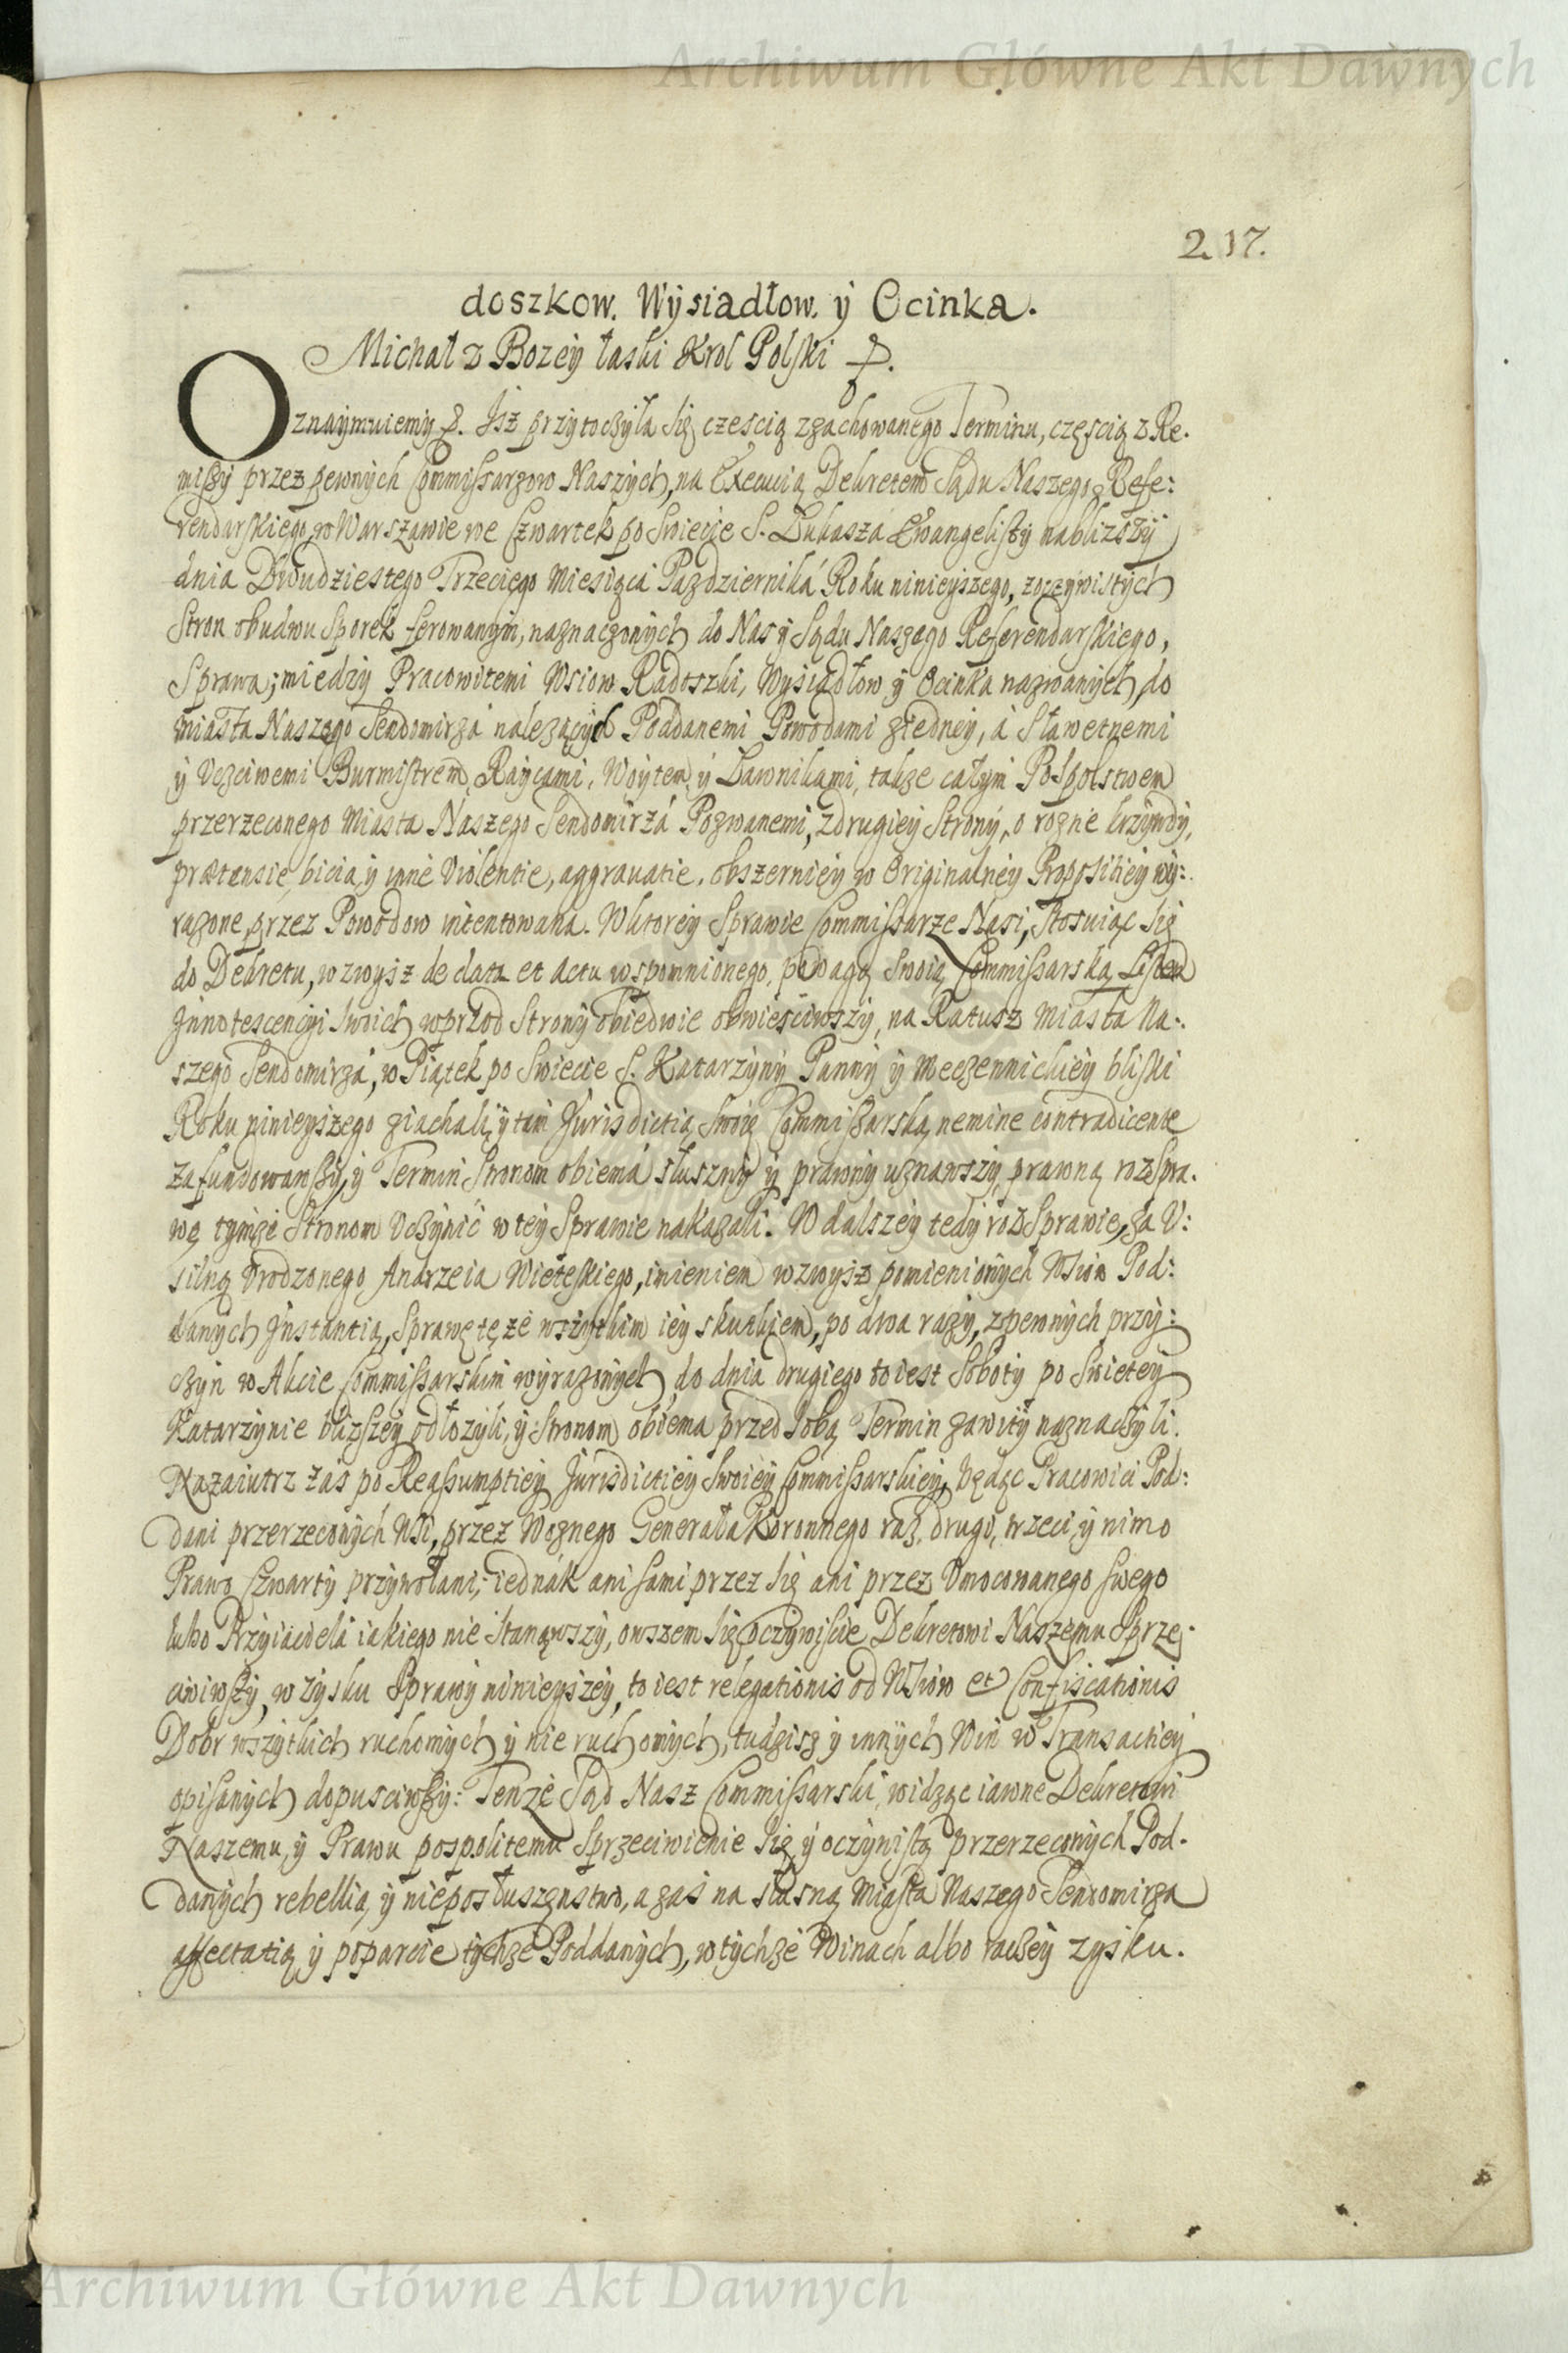 Archiwum Główne Akt Dawnych
217.
doszkow. Wysiadłow. ÿ Ocinka.
Michał z Bozeÿ łaski Krol Polski
Oznaÿmuiemÿ. Jsz przÿtoczÿła się częscią zzachowanego Terminu, częscią z Re.
missÿ przez pewnÿch Commissarzow Naszÿch, na Execucią Dekretem Sądu Naszego Refe:
rendarskiego, w Warszawie we Czwartek po Swięcie S. Łukasza Ewangelistÿ nablizszÿ
dnia Dwudziestego Trzeciego Miesiąca Pazdziernika Roku ninieÿszego, zoczÿwistÿch
Stron obudwu Sporek ferowanÿm, naznaczonÿch do Nas ÿ Sądu Naszego Referendarskiego,
Sprawa; miedzÿ Pracowitemi Wsiow Radoszki, Wysiadłow ÿ Ocinka nazwanÿch, do
miasta Naszego Sendomirza nalezącÿch Poddanemi Powodami złedneÿ, á Sławetnemi
ÿ Vczciwemi Burmistrem, Raÿcami, Woÿtem, ÿ Ławnikami, takze całÿm Pospolstwem
przerzeconego Miasta Naszego Sendomirzá Pozwanemi, zdrugieÿ Stronÿ, o rozne krzÿwdÿ,
prætensie, bicia, ÿ inne Violentie, aggrauatie, obszernieÿ w Originalneÿ Propositieÿ wÿ:
razone, przez Powodow intentowana. Wktoreÿ Sprawie Commissarze Nasi, stosuiąc się
do Dekretu, wzwÿsz de data et actu wspomnionego, powagą Swoią Commissarską Listem
Jnnotescencÿi swoich wprzod Stronÿ obiedwie obwiesciwszÿ, na Ratusz Miasta Na:
szego Sendomirza, w Piątek po Swięcie S. Katarzÿnÿ Pannÿ ÿ Męczenniczkieÿ bliski
Roku ninieÿszego ziachali, ÿ tam Jurisdictią Swoię Commissarską nemine contradicente
zafundowawszÿ, ÿ Termin Stronom obiema słusznÿ ÿ prawnÿ uznawszÿ, prawną rozspra.
wę tÿmze Stronom Vczÿnić w teÿ Sprawie nakazali. W dalszeÿ tedÿ rozsprawie, za V:
silną Vrodzonego Andrzeia Wieteskiego, imieniem wzwÿsz pomienionÿch Wsiow Pod:
danÿch Jnstantią, Sprawę tę ze wszÿtkim ieÿ skutkiem, po dwa razÿ, zpewnÿch przÿ:
czÿn w Akcie Commissarskim wÿrazonÿch, do dnia drugiego to iest Sobotÿ po Swieteÿ
Katarzÿnie blizszeÿ odłozÿli, ÿ Stronom obiema przed Sobą Termin zawitÿ naznaczÿli.
Nazaiutrz zas po Reassumptieÿ Jurisdictieÿ Swoieÿ Commissarskieÿ, będąc Pracowici Pod:
dani przerzeconÿch Wsi, przez Woznego Generała Koronnego raz, drugi, trzeci, ÿ nimo
Prawo Czwartÿ przÿwołani, iednák ani sami przez się ani przez Vmocowanego swego
lubo Przÿiaciela iakiego nie stanąwszÿ, owszem się oczÿwiscie Dekretowi Naszemu Sprze.
ciwiwszÿ, w zÿsku Sprawÿ ninieÿszeÿ, to iest relegationis od Wsiow et Confiscationis
Dobr wszÿtkich ruchomÿch ÿ nie ruchomÿch, tudzisz ÿ innÿch Win w Transactieÿ
opisanÿch dopusciwszÿ: Tenze Sąd Nasz Commissarski, widząc iawne Dekretowi
Naszemu, ÿ Prawu pospolitemu Sprzeciwienie się, ÿ oczÿwistą przerzeconÿch Pod.
danÿch rebellią, ÿ nieposłuszenstwo, a zas na słuszną Miasta Naszego Sendomirza
affectatią ÿ poparcie tÿchze Poddanÿch, w tÿchze Winach albo raczeÿ zÿsku.
Archiwum Główne Akt Dawnych